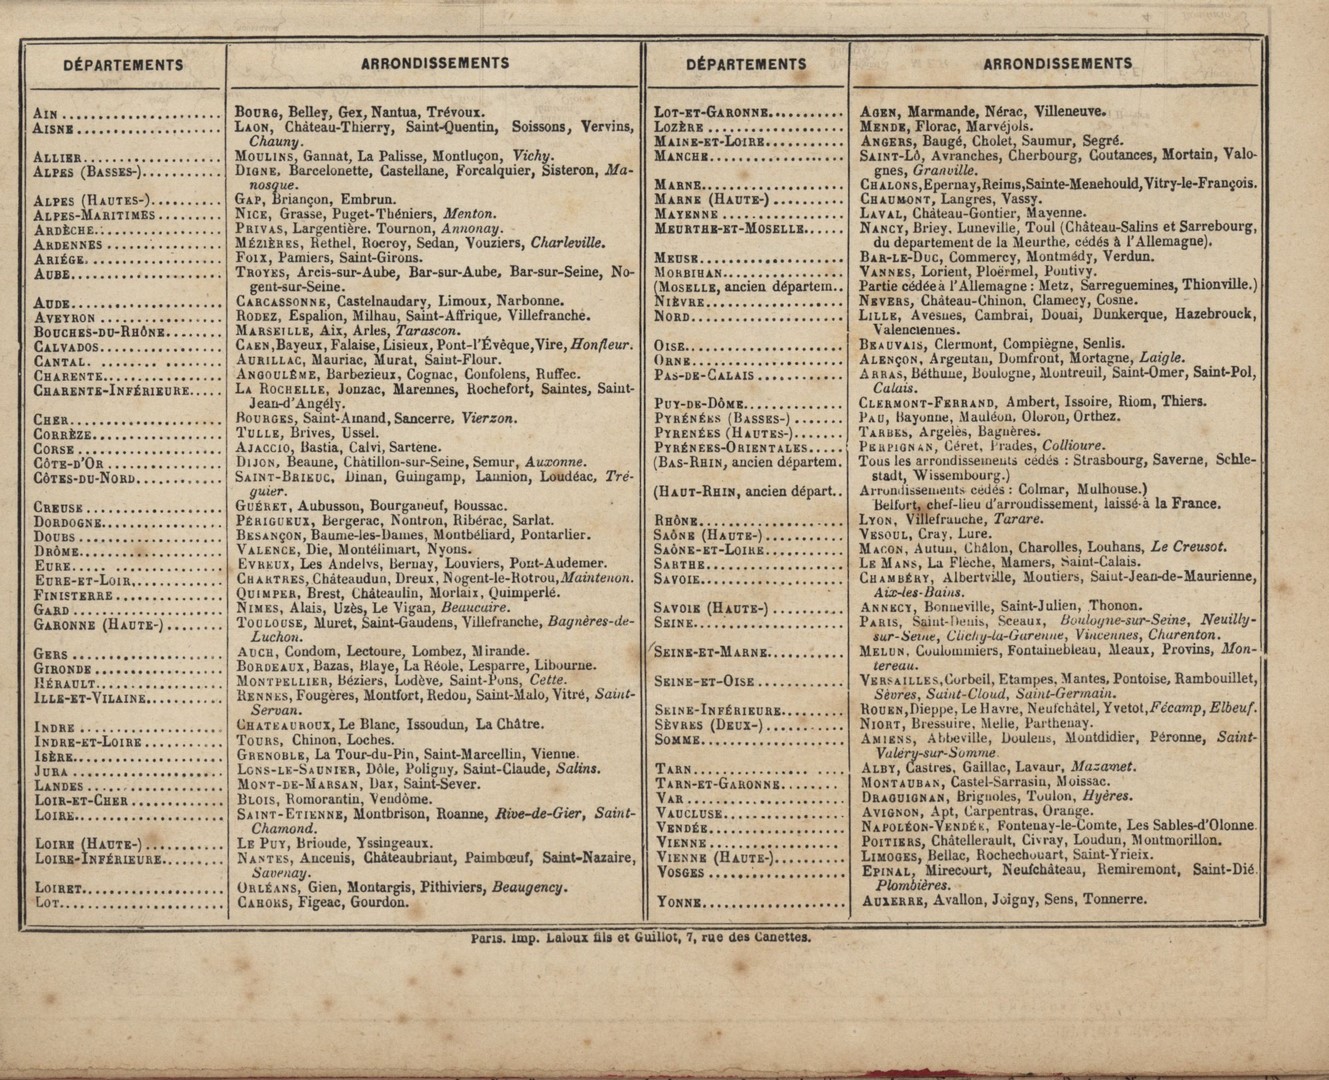 DÉPARTEMENTS ARRONDISSEMENTS
AIN ...................... BOURG, Belley, Gex, Nantua, Trévoux.
AISNE .................... LAON, Château-Thierry, Saint-Quentin, Soissons, Vervins,
Chauny.
ALLIER.................... MOULINS, Gannat, La Palisse, Montluçon, Vichy.
ALPES (BASSES-)........... DIGNE, Barcelonette, Castellane, Forcalquier, Sisteron, Ma-
nosque.
ALPES (HAUTES-).......... GAP, Briançon, Embrun.
ALPES-MARITIMES ......... NICE, Grasse, Puget-Théniers, Menton.
ARDÈCHE.................. PRIVAS, Largentière. Tournon, Annonay.
ARDENNES ................ MÉZIÈRES, Rethel, Rocroy, Sedan, Vouziers, Charleville.
ARIÉGE................... FOIX, Pamiers, Saint-Girons.
AUBE..................... TROYES, Arcis-sur-Aube, Bar-sur-Aube, Bar-sur-Seine, No-
gent-sur-Seine.
AUDE..................... CARCASSONNE, Castelnaudary, Limoux, Narbonne.
AVEYRON ................. RODEZ, Espalion, Milhau, Saint-Affrique, Villefranche.
BOUCHES-DU-RHÔNE........ MARSEILLE, Aix, Arles, Tarascon.
CALVADOS................. CAEN, Bayeux, Falaise, Lisieux, Pont-l'Évêque, Vire, Honfleur.
CANTAL. ................. AURILLAC, Mauriac, Murat, Saint-Flour.
CHARENTE................. ANGOULÊME, Barbezieux, Cognac, Confolens, Ruffec.
CHARENTE-INFÉRIEURE..... LA ROCHELLE, Jonzac, Marennes, Rochefort, Saintes, Saint-
Jean-d'Angély.
CHER..................... BOURGES, Saint-Amand, Sancerre, Vierzon.
CORRÈZE.................. TULLE, Brives, Ussel.
CORSE ................... AJACCIO, Bastia, Calvi, Sartène.
CÔTE-D'OR ............... DIJON, Beaune, Châtillon-sur-Seine, Semur, Auxonne.
CÔTES-DU-NORD............ SAINT-BRIEUC, Dinan, Guingamp, Lannion, Loudéac, Tré-
guier.
CREUSE .................. GUÉRET, Aubusson, Bourganeuf, Boussac.
DORDOGNE................. PÉRIGUEUX, Bergerac, Nontron, Ribérac, Sarlat.
DOUBS ................... BESANÇON, Baume-les-Dames, Montbéliard, Pontarlier.
DRÔME.................... VALENCE, Die, Montélimart, Nyons.
EURE..... ............... EVREUX, Les Andelys, Bernay, Louviers, Pont-Audemer.
EURE-ET-LOIR............. CHARTRES, Châteaudun, Dreux, Nogent-le-Rotrou, Maintenon.
FINISTERRE .............. QUIMPER, Brest, Châteaulin, Morlaix, Quimperlé.
GARD .................... NIMES, Alais, Uzès, Le Vigan, Beaucaire.
GARONNE (HAUTE-) ........ TOULOUSE, Muret, Saint-Gaudens, Villefranche, Bagnères-de-
Luchon.
GERS .................... AUCH, Condom, Lectoure, Lombez, Mirande.
GIRONDE ................. BORDEAUX, Bazas, Blaye, La Réole, Lesparre, Libourne.
HÉRAULT.................. MONTPELLIER, Béziers, Lodève, Saint-Pons, Cette.
ILLE-ET-VILAINE.......... RENNES, Fougères, Montfort, Redon, Saint-Malo, Vitré, Saint-
Servan.
INDRE ................... CHATEAUROUX, Le Blanc, Issoudun, La Châtre.
INDRE-ET-LOIRE .......... TOURS, Chinon, Loches.
ISÈRE.................... GRENOBLE, La Tour-du-Pin, Saint-Marcellin, Vienne.
JURA .................... LONS-LE-SAUNIER, Dôle, Poligny, Saint-Claude, Salins.
LANDES .................. MONT-DE-MARSAN, Dax, Saint-Sever.
LOIR-ET-CHER ............ BLOIS, Romorantin, Vendôme.
LOIRE.................... SAINT-ETIENNE, Montbrison, Roanne, Rive-de-Gier, Saint-
Chamond.
LOIRE (HAUTE-) .......... LE PUY, Brioude, Yssingeaux.
LOIRE-INFÉRIEURE......... NANTES, Ancenis, Châteaubriant, Paimbœuf, Saint-Nazaire,
Savenay.
LOIRET................... ORLÉANS, Gien, Montargis, Pithiviers, Beaugency.
LOT...................... CAHORS, Figeac, Gourdon.
DÉPARTEMENTS ARRONDISSEMENTS
LOT-ET-GARONNE.......... AGEN, Marmande, Nérac, Villeneuve.
LOZÈRE .................. MENDE, Florac, Marvéjols.
MAINE-ET-LOIRE.......... ANGERS, Baugé, Cholet, Saumur, Segré.
MANCHE................... SAINT-LÔ, Avranches, Cherbourg, Coutances, Mortain, Valo-
gnes, Granville.
MARNE.................... CHALONS, Epernay, Reims, Sainte-Menehould, Vitry-le-François.
MARNE (HAUTE-) .......... CHAUMONT, Langres, Vassy.
MAYENNE ................. LAVAL, Château-Gontier, Mayenne.
MEURTHE-ET-MOSELLE..... NANCY, Briey, Luneville, Toul (Château-Salins et Sarrebourg,
du département de la Meurthe, cédés à l'Allemagne).
MEUSE.................... BAR-LE-DUC, Commercy, Montmédy, Verdun.
MORBIHAN................. VANNES, Lorient, Ploërmel, Pontivy.
(MOSELLE, ancien départem.. Partie cédée à l'Allemagne : Metz, Sarreguemines, Thionville.)
NIÈVRE................... NEVERS, Château-Chinon, Clamecy, Cosne.
NORD..................... LILLE, Avesnes, Cambrai, Douai, Dunkerque, Hazebrouck,
Valenciennes.
OISE..................... BEAUVAIS, Clermont, Compiègne, Senlis.
ORNE..................... ALENÇON, Argentan, Domfront, Mortagne, Laigle.
PAS-DE-CALAIS ........... ARRAS, Béthune, Boulogne, Montreuil, Saint-Omer, Saint-Pol,
Calais.
PUY-DE-DÔME.............. CLERMONT-FERRAND, Ambert, Issoire, Riom, Thiers.
PYRÉNÉES (BASSES-) ...... PAU, Bayonne, Mauléon, Oloron, Orthez.
PYRENÉES (HAUTES-)....... TARBES, Argelès, Bagnères.
PYRÉNEES-ORIENTALES ..... PERPIGNAN, Céret, Prades, Collioure.
(BAS-RHIN, ancien départem. Tous les arrondissements cédés : Strasbourg, Saverne, Schle-
stadt, Wissembourg.)
(HAUT-RHIN, ancien départ.. Arrondissements cédés : Colmar, Mulhouse.)
Belfort, chef-lieu d'arrondissement, laissé à la France.
RHÔNE.................... LYON, Villefranche, Tarare.
SAÔNE (HAUTE-) .......... VESOUL, Cray, Lure.
SAÔNE-ET-LOIRE........... MACON, Autun, Châlon, Charolles, Louhans, Le Creusot.
SARTHE .................. LE MANS, La Flèche, Mamers, Saint-Calais.
SAVOIE................... CHAMBÉRY, Albertville, Moutiers, Saint-Jean-de-Maurienne,
Aix-les-Bains.
SAVOIE (HAUTE-) ......... ANNECY, Bonneville, Saint-Julien, Thonon.
SEINE.................... PARIS, Saint-Denis, Sceaux, Boulogne-sur-Seine, Neuilly-
sur-Seine, Clichy-la-Garenne, Vincennes, Charenton.
SEINE-ET-MARNE........... MELUN, Coulommiers, Fontainebleau, Meaux, Provins, Mon-
tereau.
SEINE-ET-OISE ........... VERSAILLES, Corbeil, Etampes, Mantes, Pontoise, Rambouillet,
Sèvres, Saint-Cloud, Saint-Germain.
SEINE-INFÉRIEURE......... ROUEN, Dieppe, Le Havre, Neufchâtel, Yvetot, Fécamp, Elbeuf.
SÈVRES (DEUX-) .......... NIORT, Bressuire, Melle, Parthenay.
SOMME.................... AMIENS, Abbeville, Doulens, Montdidier, Péronne, Saint-
Valéry-sur-Somme.
TARN..................... ALBY, Castres, Gaillac, Lavaur, Mazamet.
TARN-ET-GARONNE........ MONTAUBAN, Castel-Sarrasin, Moissac.
VAR ..................... DRAGUIGNAN, Brignoles, Toulon, Hyères.
VAUCLUSE................. AVIGNON, Apt, Carpentras, Orange.
VENDÉE................... NAPOLÉON-VENDÉE, Fontenay-le-Comte, Les Sables-d'Olonne.
VIENNE .................. POITIERS, Châtellerault, Civray, Loudun, Montmorillon.
VIENNE (HAUTE-).......... LIMOGES, Bellac, Rochechouart, Saint-Yrieix.
VOSGES .................. EPINAL, Mirecourt, Neufchâteau, Remiremont, Saint-Dié.
Plombières.
YONNE.................... AUXERRE, Avallon, Joigny, Sens, Tonnerre.
Paris. Imp. Laloux fils et Guillot, 7, rue des Canettes.